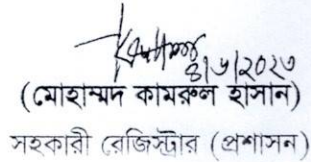 ৪/৬/২০২৩
(মোহাম্মদ কামরুল হাসান)
সহকারী রেজিস্ট্রার (প্রশাসন)